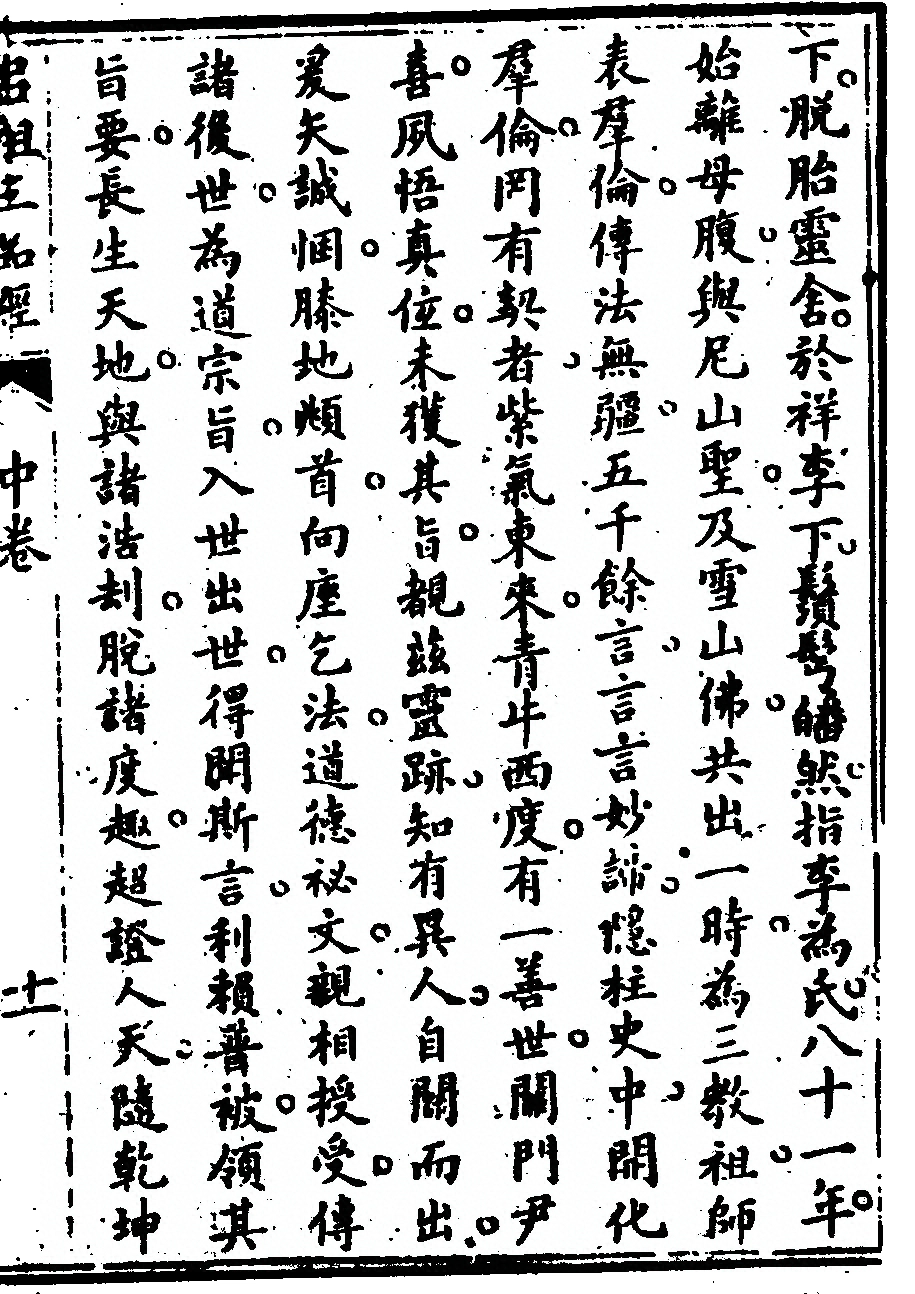 下脱胎靈舍於祥李下鬚髩皤然指李為氏八十一年
始離母腹與尼山聖及雪山佛共出一時為三教祖師
表羣倫傳法無疆五千餘言言言妙諦隱柱史中開化
羣倫罔有契者紫氣東來青牛西度有一善世關門尹
喜夙悟真位未獲其旨覩茲靈跡知有異人自關而出
爰矢誠悃膝地頫首向座乞法道德祕文親相授受傳
諸後世為道宗旨入世出世得聞斯言利賴普被領淇
旨要長生天地與諸浩刦脫諸度趣超證人天隨乾坤
呂祖全品經 中卷 十一